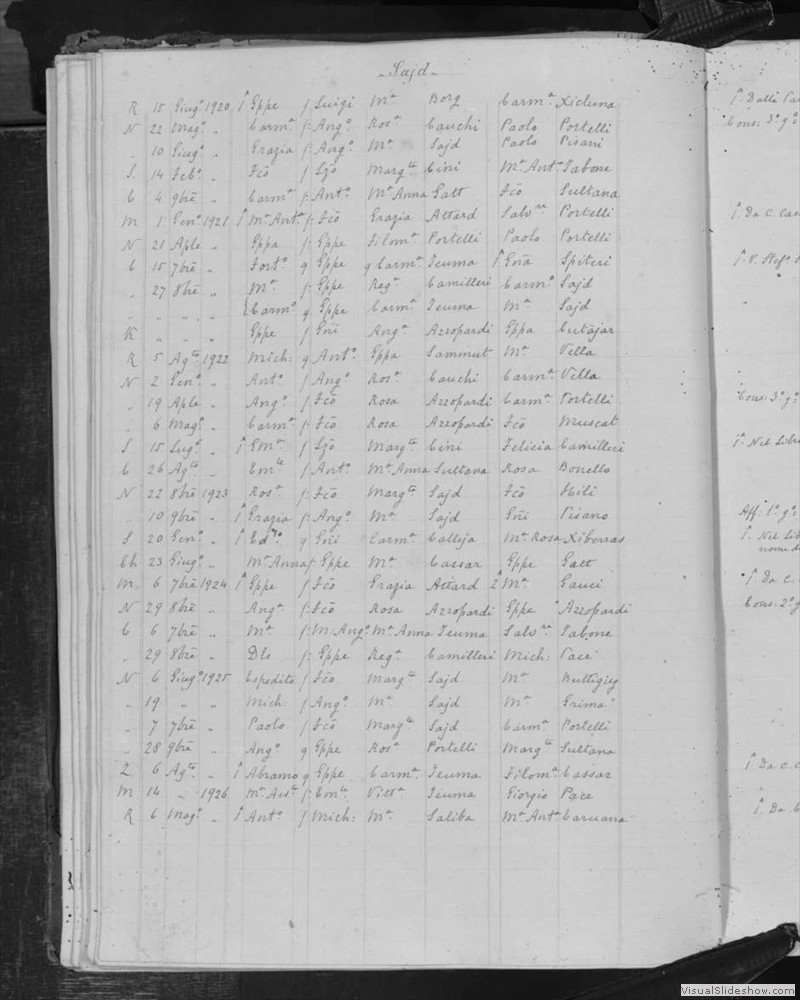 Sajd
R 15 Giugº 1920 1º Eppe f Luigi Mª Borg Carmª Xicluna
N 22 Magº " Carmª f: Angº Rosª Cauchi Paolo Portelli
" 10 Giugº " Grazia f: Angº Mª Sajd Paolo Pisani
S 14 Febº " Fcõ f Margta Cini Mª Antª Tabone
C 4 9bre " Carmª f: Antº Mª Anna Gatt Fcõ Sultana
M 1 Genº 1921 Mª Antª f: Fcõ Grazia Attard Salvre Portelli
N 21 Aple " Eppa f: Eppe Filomª Portelli Paolo Portelli
C 15 7bre " Fortº g Eppe g Carmª Teuma Spiteri
" 27 8bre " Mª f: Eppe Regª Camilleri Carmº Sajd
" " " " Carmº g Eppe Carmª Teuma Mª Sajd
K " " " Eppe f Gñi Angª Azzopardi Eppa Cutajar
R 5 Agto 1922 Mich: g Antº Eppa Sammut Mª Vella
N 2 Genº " Antº f Angº Rosª Cauchi Carmª Vella
" 19 Aple " Angº f Fcõ Rosa Azzopardi Carmª Portelli
" 6 Magº " Carmª f: Fcõ Rosa Azzopardi Fcõ Muscat
S 15 Lugº " f Margta Cini Felicia Camilleri
C 26 Agto " Emle f Antº Mª Anna Sultana Rosa Bonello
N 22 8bre 1923 Rosª f: Fcõ Margta Sajd Fcõ Hili
" 10 9bre " Grazia f: Angº Mª Sajd Gñi Pisano
S 20 Genº " g Gñi Carmª Calleja Mª Rosa Xiberras
Ch 23 Giugº " Mª Anna f Eppe Mª Cassar Eppe Gatt
M 6 7bre 1924 Eppe f Fcõ Grazia Attard 2º Mª Gauci
N 29 8bre " Angª f: Fcõ Rosa Azzopardi Eppe Azzopardi
C 6 7bre " Mª f: M: Angº Mª Anna Teuma Salvre Tabone
" 29 8bre " Dls f: Eppe Regª Camilleri Mich: Pace
N 6 Giugº 1925 Espedito f Fcõ Margta Sajd Mª Buttigieg
" 19 " " Mich: f Angº Mª Sajd Mª Grima
" 7 7bre " Paolo f Fcõ Margta Sajd Carmª Portelli
" 28 9bre " Angº g Eppe Rosª Portelli Margta Sultana
Z 6 Agto " Abramo g Eppe Carmª Teuma Filomª Cassar
M 14 " 1926 f: Emle Vittª Teuma Giorgio Pace
R 6 Magº " Antº f Mich: Mª Saliba Mª Antª Caruana
Cons: 3º gº
Cons: 3º gº
Aff: 1º gº
Cons: 2º g
VisualSlideshow.com